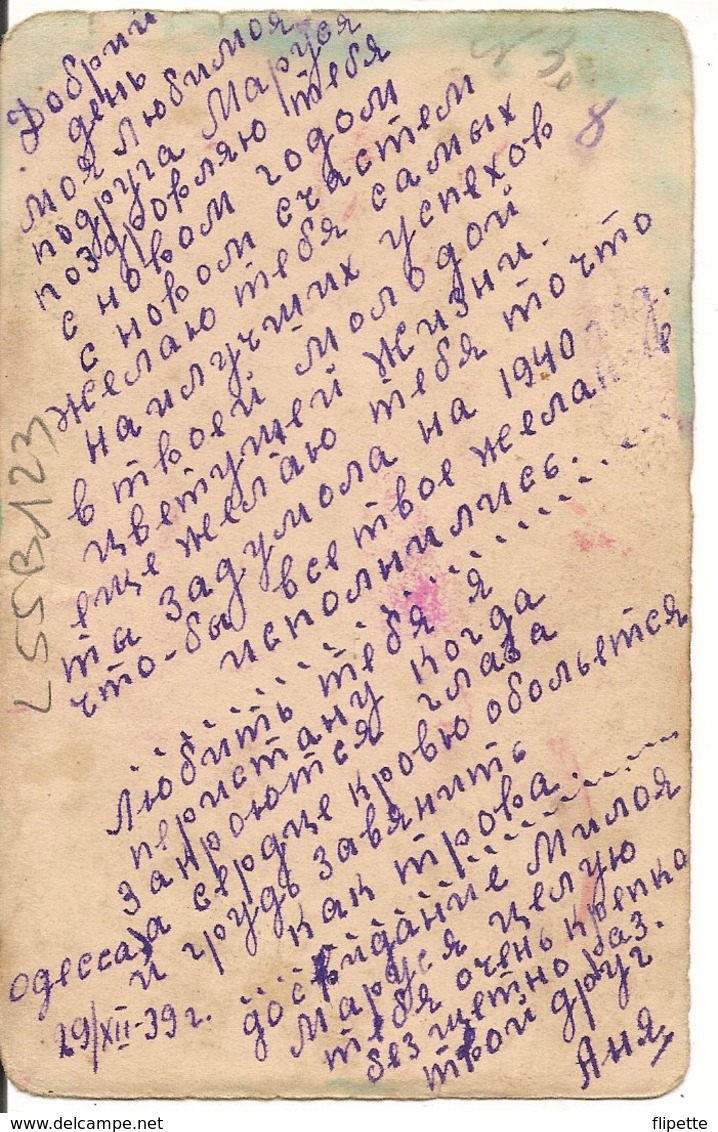 Добрий
день
моя любимоя
подруга Маруся
поздровляю тебя
с новом годом
с новом счастем
желаю тебе самых
наилучших успехов
в твоей молодой
цветущей жизни.
еще желаю тебя то что
ты задумола на 1940 год.
что-бы все твое желания
исполнились.
Любить тебя я
перистану когда
закроются глаза
а сердце кровю обольется
и грудь завянить
как трова
Одесса
19/XII-39 г.
досвидание милоя
Маруся целую
тебя очень крепко
без щетно раз.
твой друг
Аня
LSSB123
N 30
8
flipette
www.delcampe.net